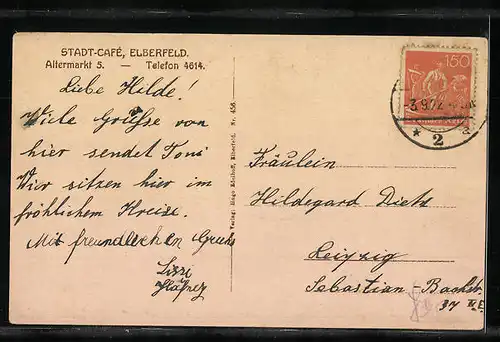 STADT-CAFÉ, ELBERFELD.
Altermarkt 5. — Telefon 4614.
Liebe Hilde!
Viele Grüße von
hier sendet Toni
Wir sitzen hier im
fröhlichem Kreise.
Mit freundlichen
Verlag: Hugo Edelhoff, Elberfeld. Nr. 456.
150
3.9.22
* 2 a
Fräulein
Hildegard Dietz
Leipzig
Sebastian-Bachstr.
37